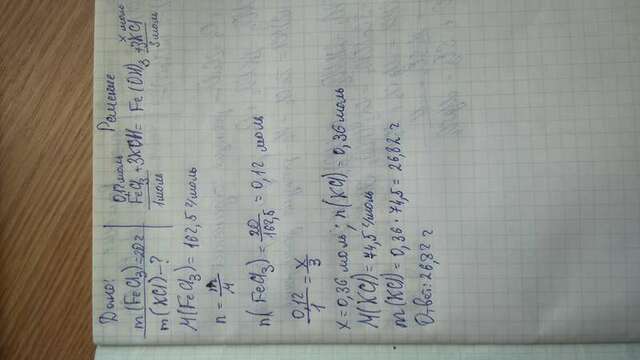 Дано:
m(FeCl₃)=20г
m(KCl)-?
Решение
0,12моль x моль
FeCl₃ + 3KOH = Fe(OH)₃ + 3KCl
1моль 3 моль
M(FeCl₃) = 162,5 г/моль
n = m/M
n(FeCl₃) = 20/162,5 = 0,12 моль
0,12/1 = x/3
x = 0,36 моль; n(KCl) = 0,36 моль
M(KCl) = 74,5 г/моль
m(KCl) = 0,36 · 74,5 = 26,82 г
Ответ: 26,82 г